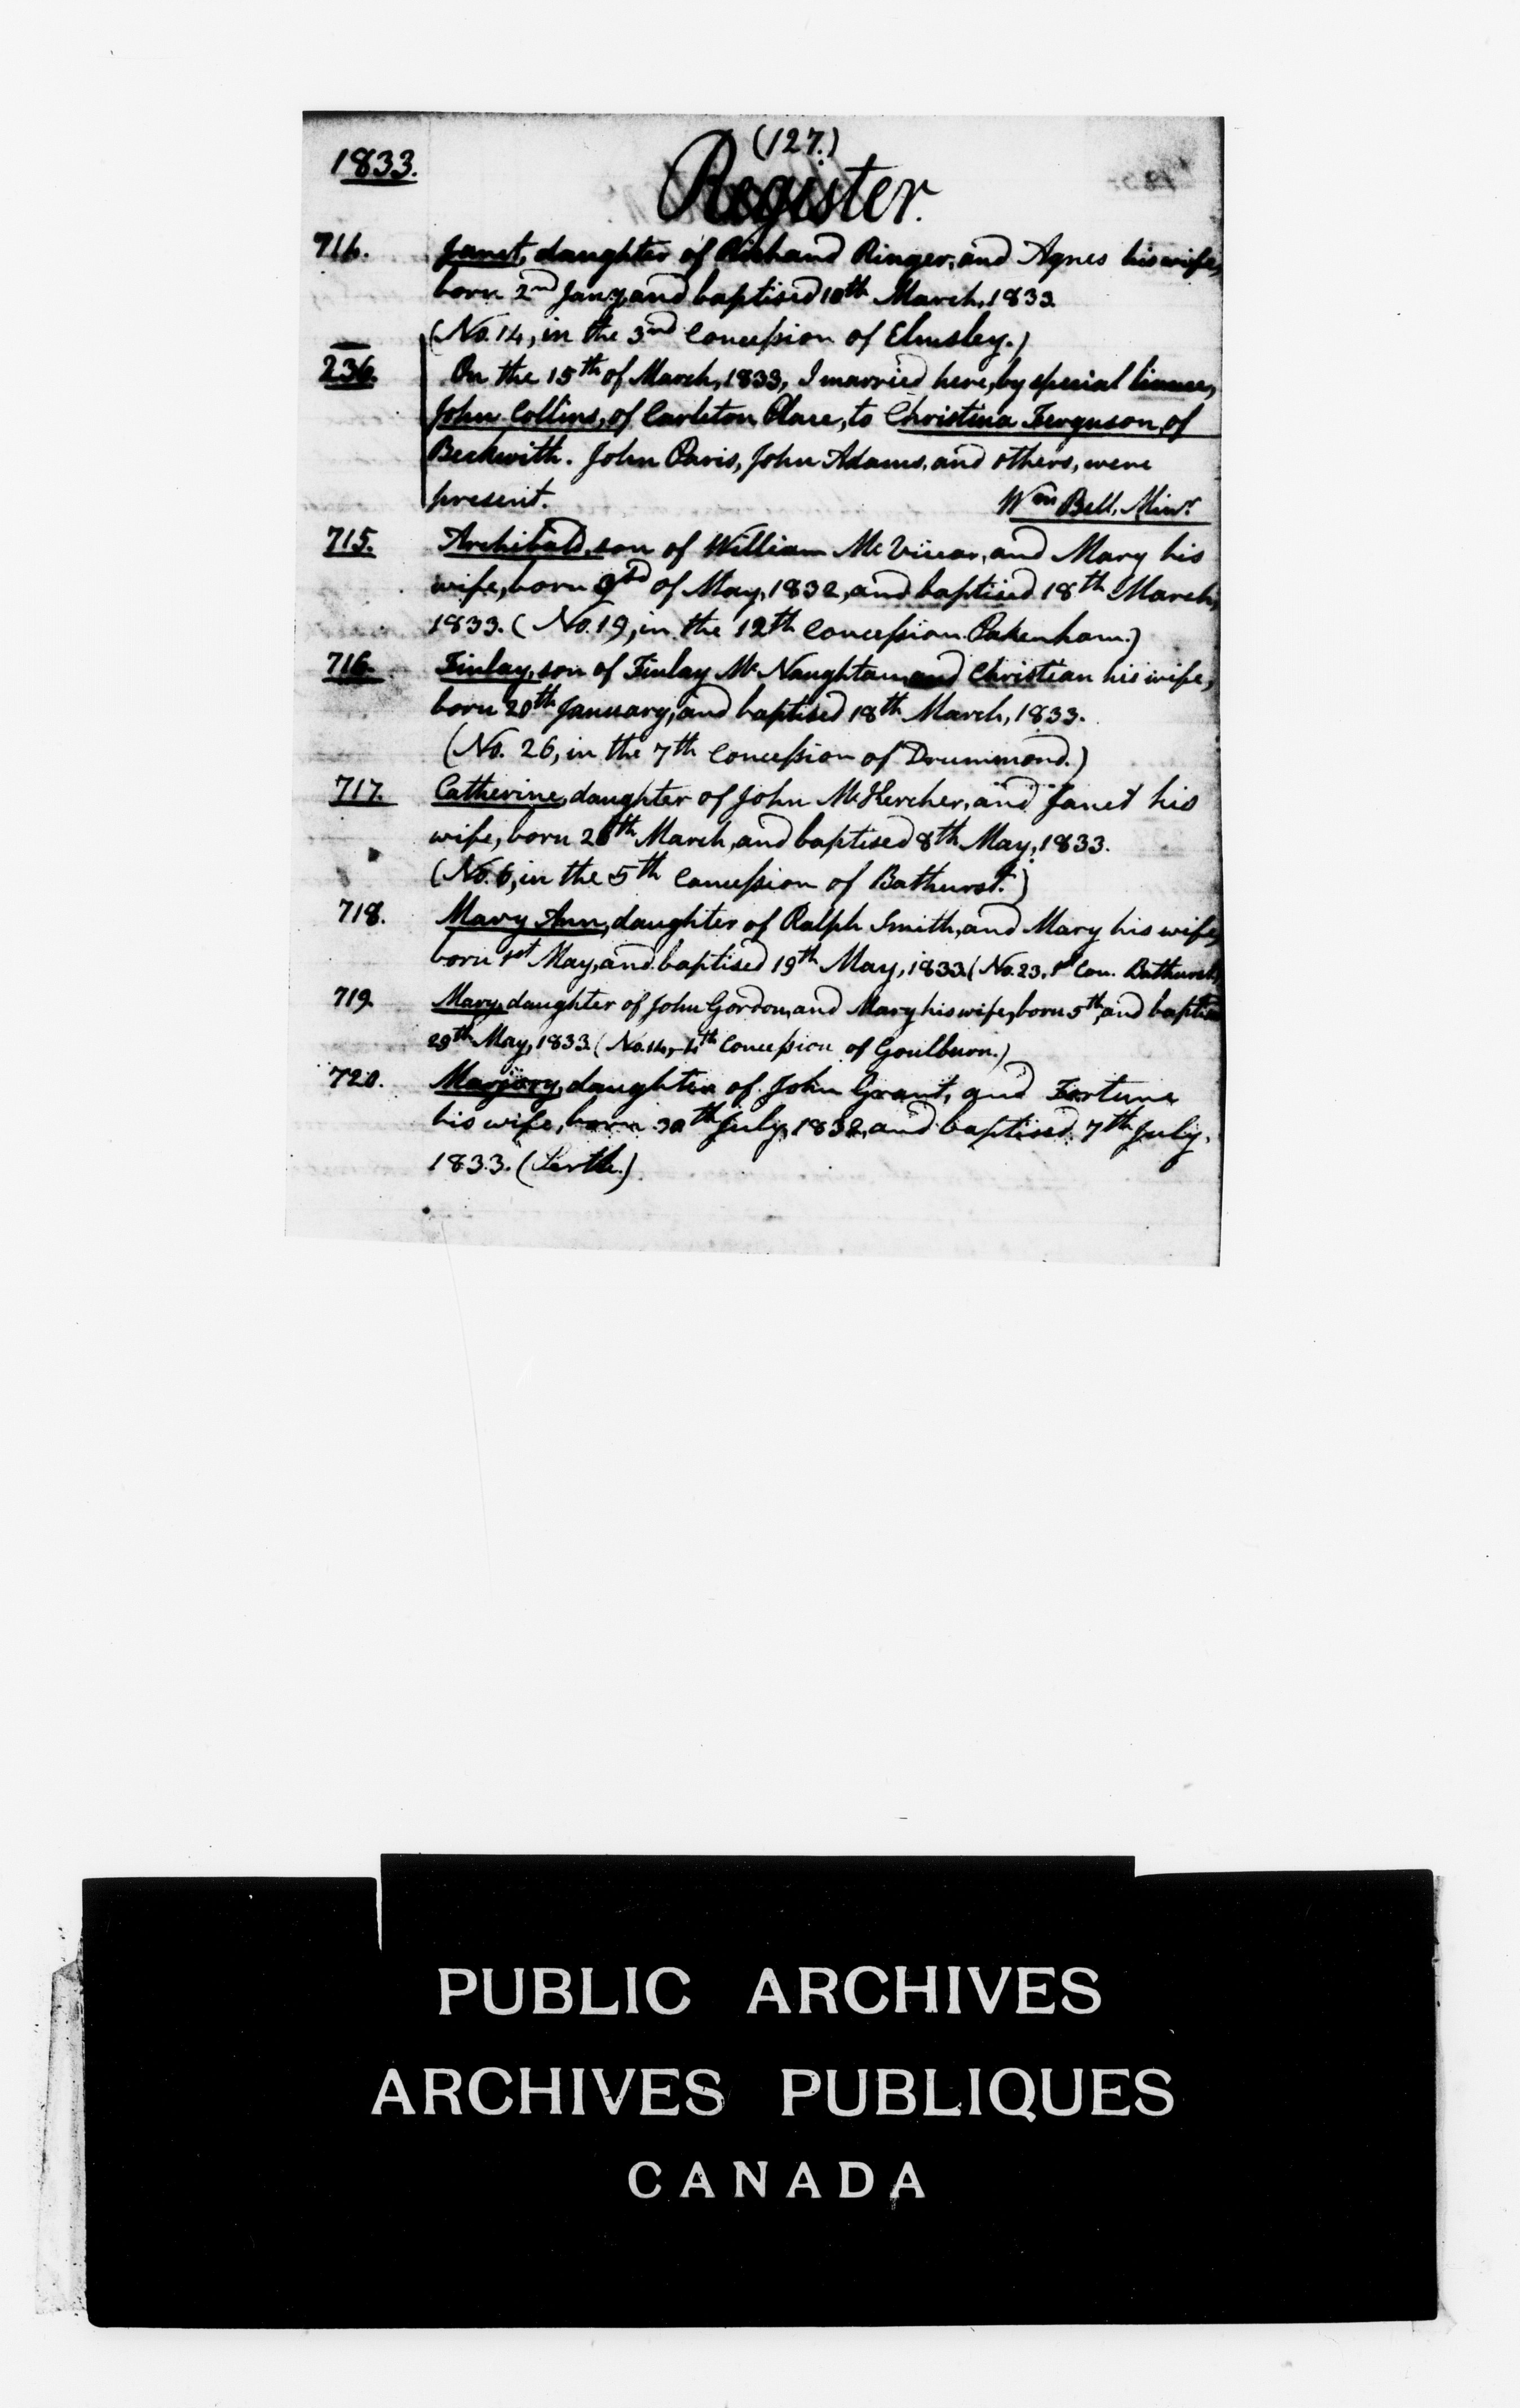 (127.)
1833.
Register.
714. Janet, daughter of Richard Ringer, and Agnes his wife,
born 2nd Jany, and baptised 10th March, 1833
(No. 14, in the 3rd Concession of Elmsley.)
236. On the 15th of March, 1833, I married here, by special licence,
John Collins, of Carleton Place, to Christina Ferguson, of
Beckwith. John Paris, John Adams, and others, were
present. Wm Bell, Minr
715. Archibald, son of William McVicar, and Mary his
wife, born of May, 1832, and baptised 18th March,
1833. (No. 19, in the 12th Concession Pakenham.)
716. Finlay, son of Finlay McNaughtan, and Christian his wife,
born 20th January, and baptised 18th March, 1833.
(No. 26, in the 7th Concession of Drummond.)
717. Catherine, daughter of John McKercher, and Janet his
wife, born March, and baptised 8th May, 1833.
(No. 6, in the 5th Concession of Bathurst.)
718. Mary Ann, daughter of Ralph Smith, and Mary his wife,
born 1st May, and baptised 19th May, 1833. (No. 23, 1st Con. Bathurst)
719. Mary, daughter of John Gordon, and Mary his wife, born 5th, and baptised
29th May, 1833. (No. 14, 4th Concession of Goulburn.)
720. Marjory, daughter of John Grant, and Fortune
his wife, born 30th July, 1832, and baptised 7th July,
1833. (Perth.)
PUBLIC ARCHIVES
ARCHIVES PUBLIQUES
CANADA